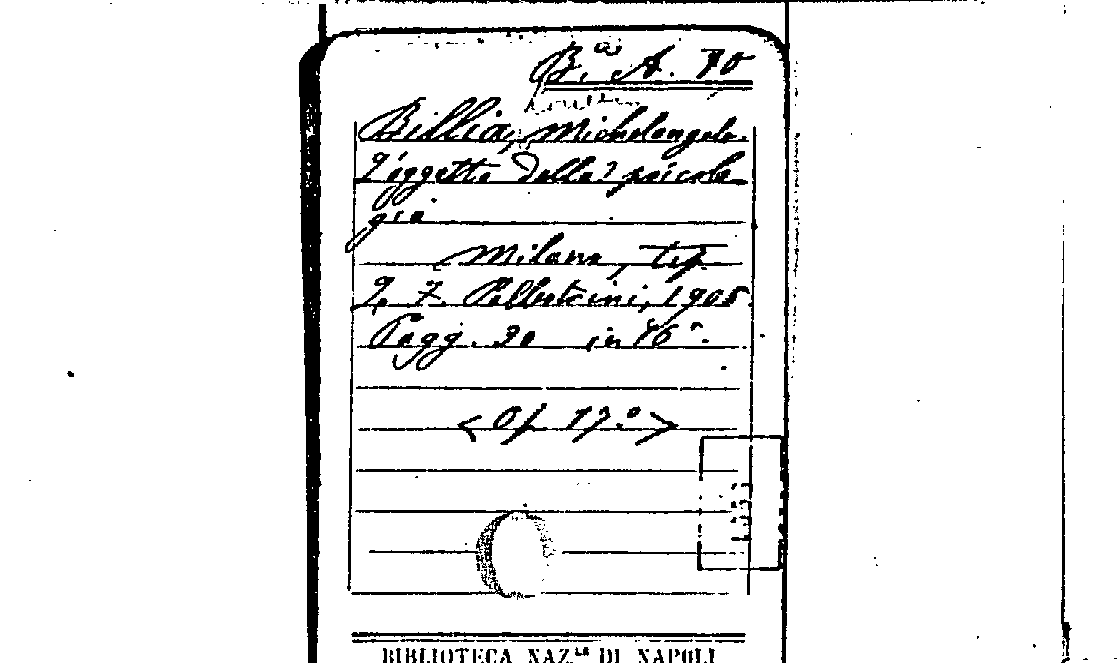 B.a A. 70
Billia, Michelangelo.
L'oggetto della psicolo-
gia
Milano, tip.
L. F. Pallestrini, 1905.
Pagg. 30 in 16°.
< Of 17.° >
BIBLIOTECA NAZ.LE DI NAPOLI